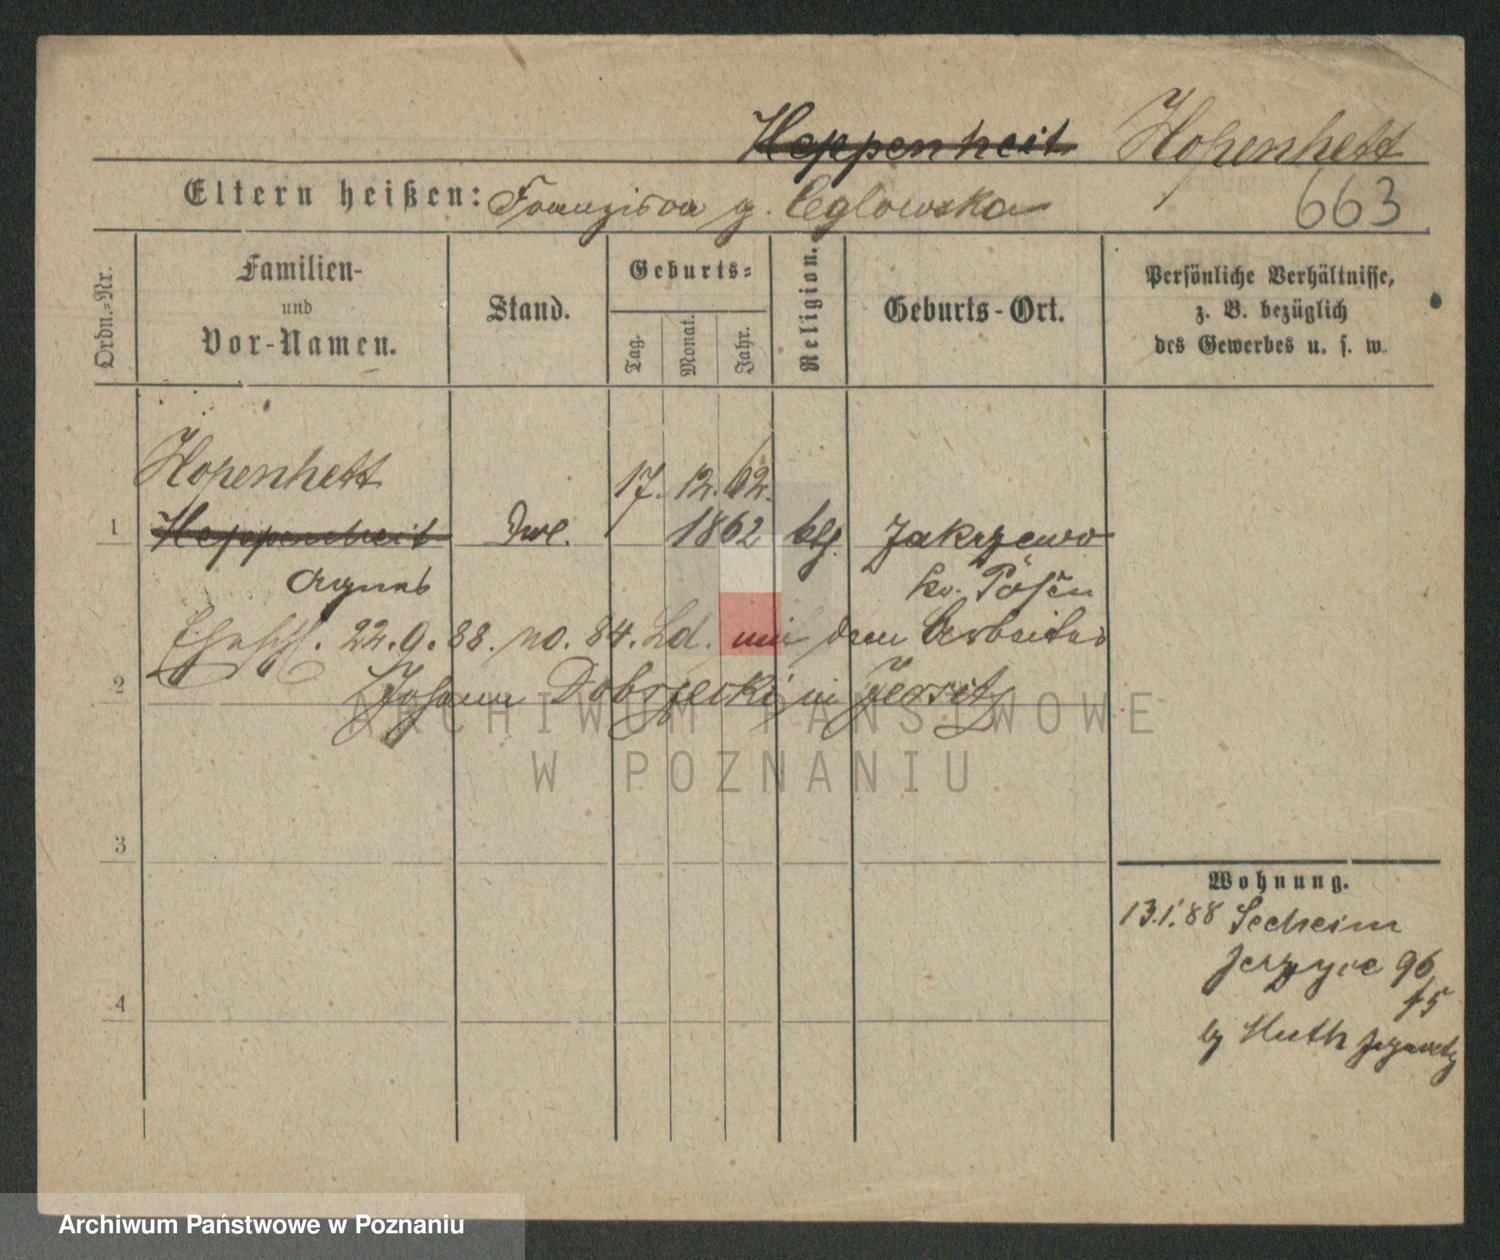 Heppenheit Hopenhett
Eltern heißen: Franziska g. Ceglowska
663
Ordn.-Nr.
Familien-
und
Vor-Namen.
Stand.
Geburts-
Tag.
Monat.
Jahr.
Religion.
Geburts-Ort.
Persönliche Verhältnisse,
z. B. bezüglich
des Gewerbes u. s. w.
Hopenhett 17. 12. 62.
1 Heppenheit 1862 Zakrzewo
Agnes Kr. Posen
22.9.88. no. 84. mit dem Arbeiter
2 Johann in Jersitz
3
4
Wohnung.
13.1.88
Jerzyce 96
f5
Huth
ARCHIWUM PAŃSTWOWE
W POZNANIU
Archiwum Państwowe w Poznaniu